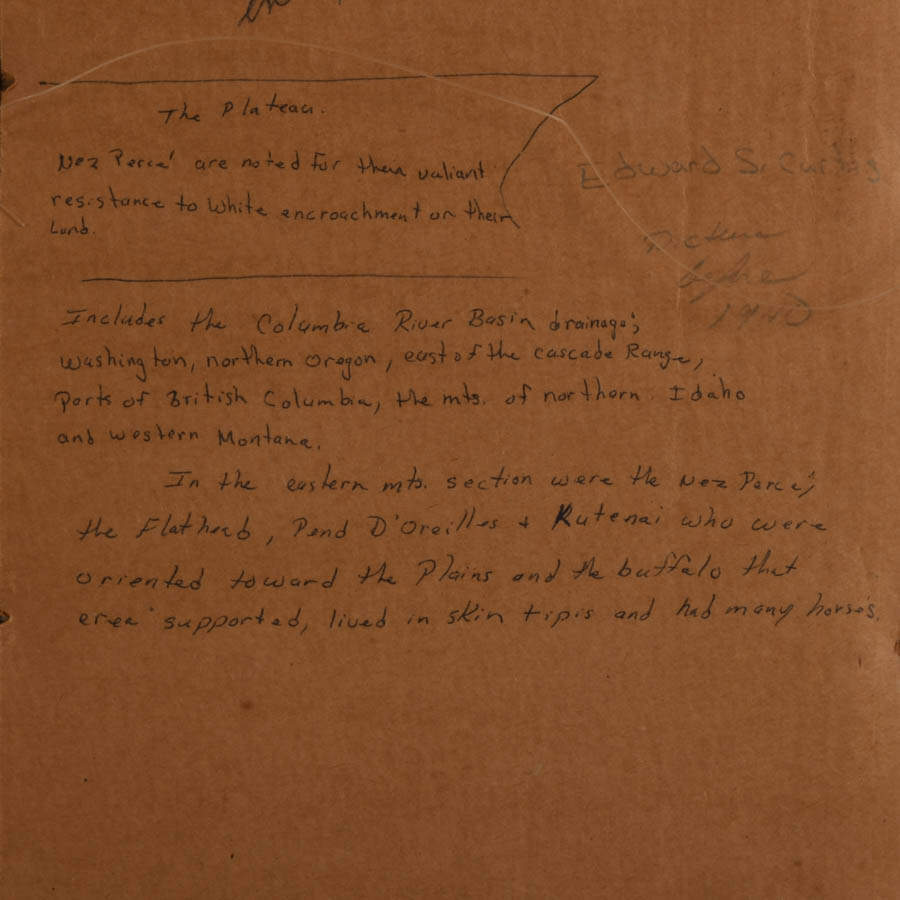 The Plateau.
Nez Perce' are noted for their valiant
resistance to White encroachment on their
Land.
Edward S. Curtis
1940
Includes the Columbia River Basin drainage;
Washington, northern Oregon, east of the Cascade Range,
Parts of British Columbia, the mts. of northern Idaho
and western Montana.
In the eastern mts. section were the Nez Perce',
the Flathead, Pend D'Oreilles + Kutenai who were
oriented toward the Plains and the buffalo that
area supported, lived in skin tipis and had many horses.